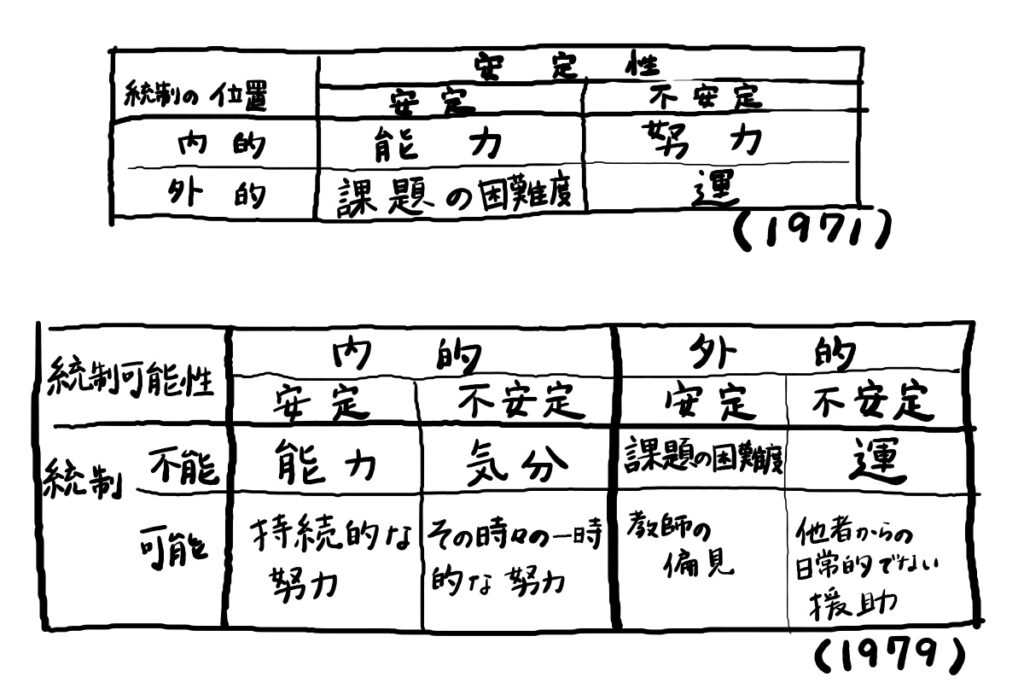 安定性
統制の位置
安定 不安定
内的 能力 努力
外的 課題の困難度 運
(1971)
内的 外的
統制可能性
安定 不安定 安定 不安定
統制 不能 能力 気分 課題の困難度 運
可能 持続的な努力 その時々の一時的な努力 教師の偏見 他者からの日常的でない援助
(1979)